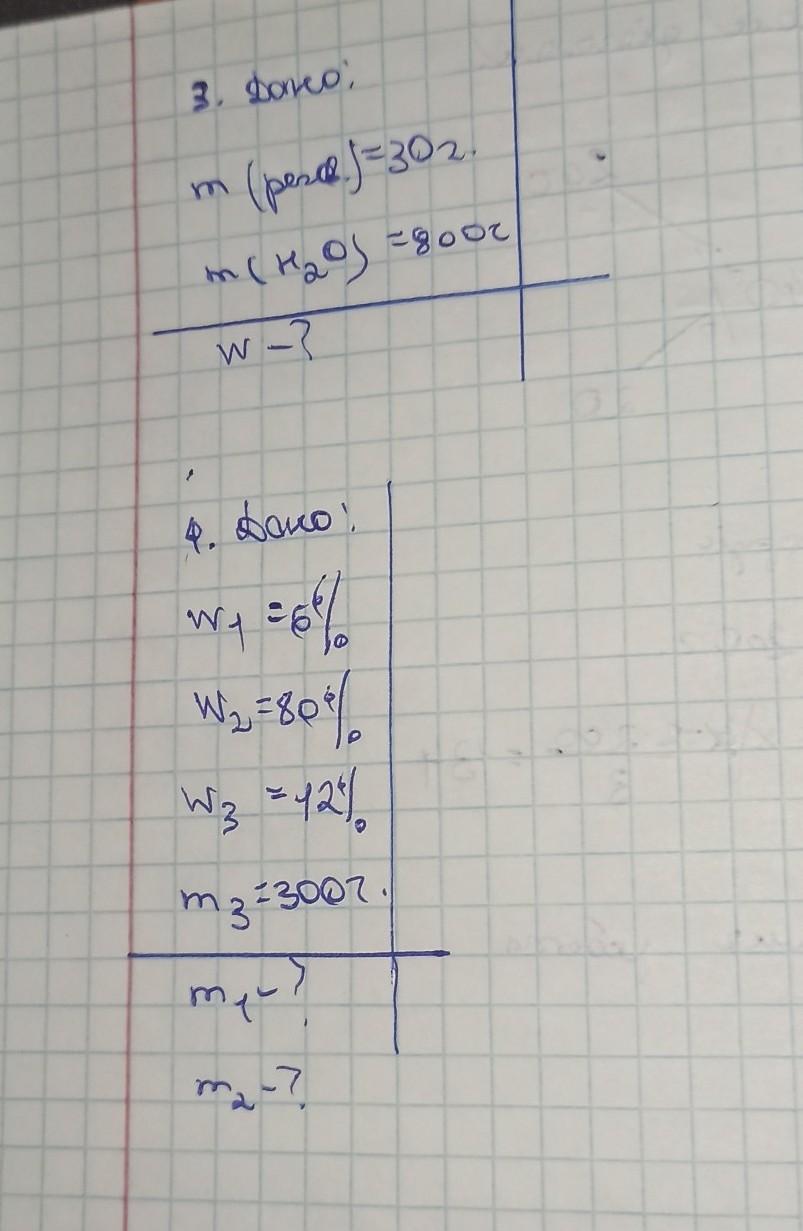 3. Дано:
m ( )=30г.
m(H₂O) =800г
W-?
4. Дано:
W₁ =6%
W₂=80%
W₃ =12%
m₃=300г.
m₁-?
m₂-?